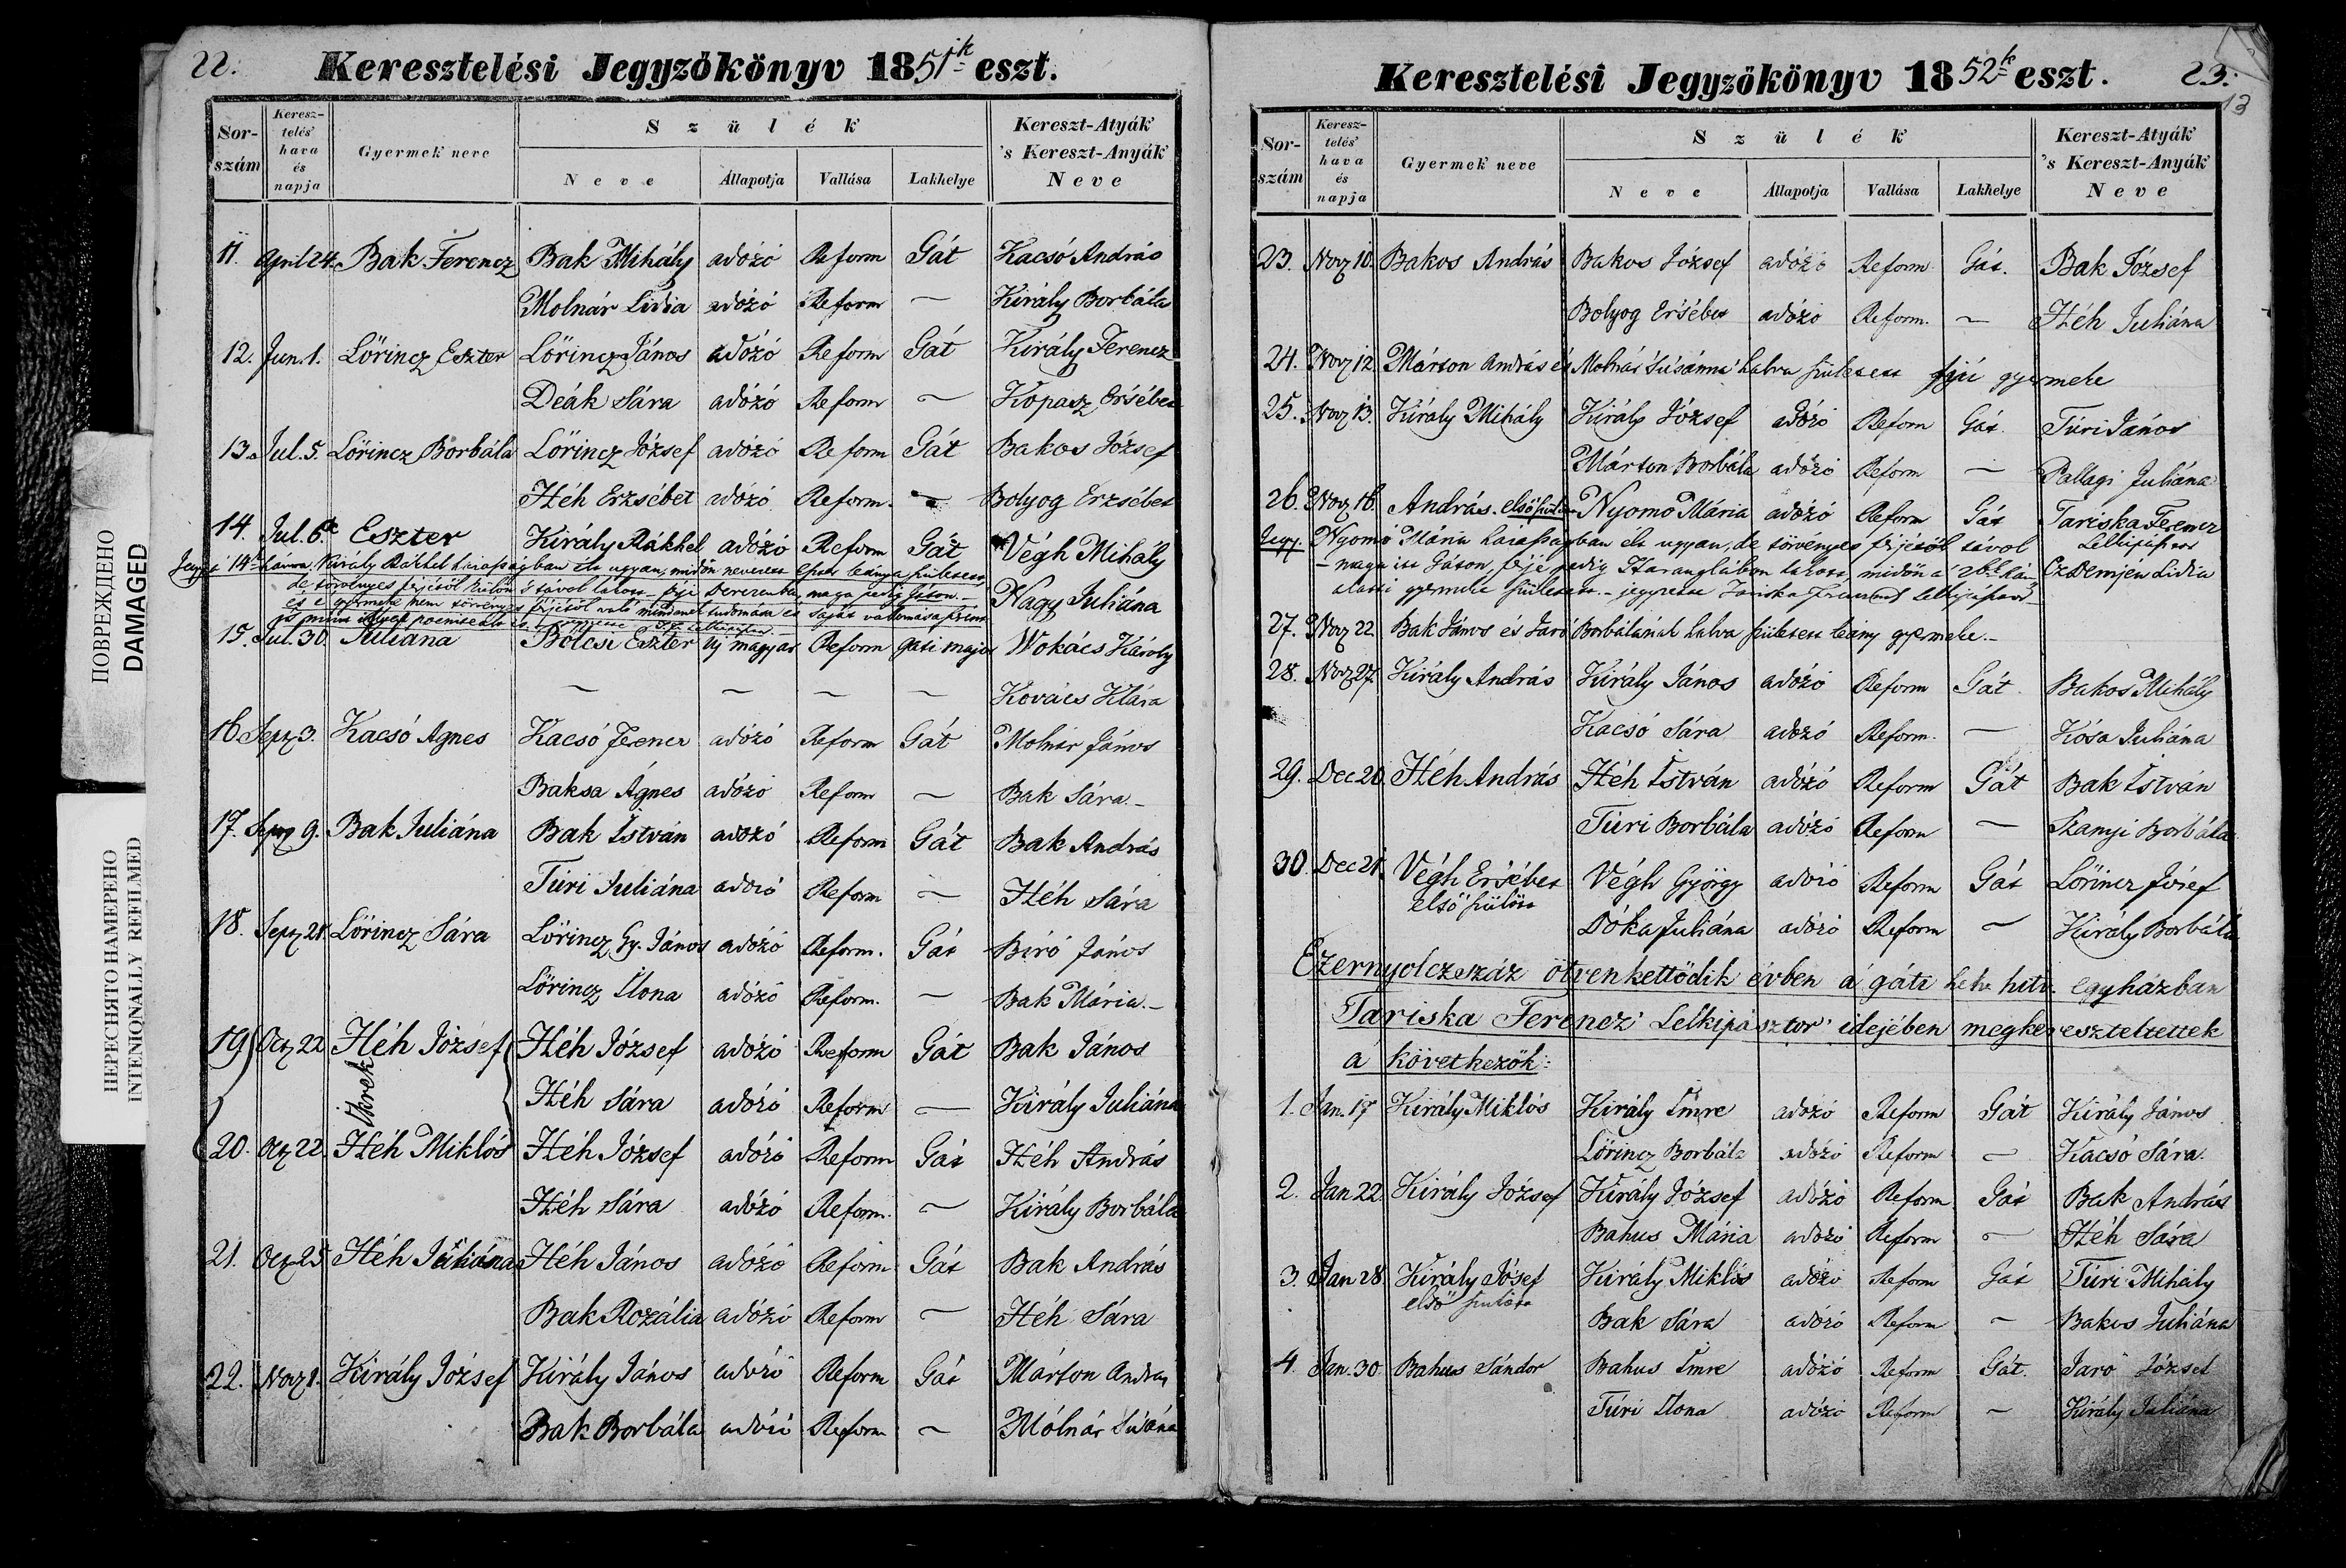 ПОВРЕЖДЕНО
DAMAGED
ПЕРЕСНЯТО НАМЕРЕНО
INTENIONALLY REFILMED
22.
Keresztelési Jegyzőkönyv 1851ik eszt.
Sor-szám Keresz-telés' hava és napja Gyermek neve Szülék Kereszt-Atyák 's Kereszt-Anyák Neve
Neve Állapotja Vallása Lakhelye
11. April 24. Bak Ferencz Bak Mihály adózó Reform Gát Kacsó András
Molnár Lidia adózó Reform — Király Borbála
12. Jun. 1. Lőrincz Eszter Lőrincz János adózó Reform Gát Király Ferencz
Deák Sára adózó Reform — Kopasz Ersébet
13. Jul. 5. Lőrincz Borbála Lőrincz József adózó Reform Gát Bakos József
Héh Erzsébet adózó Reform. — Bolyog Erzsébet
14. Jul. 6. Eszter Király Rákhel adózó Reform Gát Végh Mihály
Király Rákhel házasságban él ugyan, midőn leánya születess,
de törvényes férjétől külön s távol lakoss — férje Derecenben, maga pedig Gáton. —
Nagy Juliána
és e gyermek nem törvényes férjétől való
15. Jul. 30. Juliána Bölcsi Eszter új magyar Reform gáti major Wokács Károly
— — — — Kovács Klára
16. Sept 3. Kacsó Agnes Kacsó Ferencz adózó Reform Gát Molnár János
Baksa Ágnes adózó Reform — Bak Sára. —
17. Sept 9. Bak Juliána Bak István adózó Reform Gát Bak András
Túri Juliána adózó Reform — Héh Sára
18. Sept 21. Lőrincz Sára Lőrincz Gy. János adózó Reform. Gát Biró János
Lőrincz Ilona adózó Reform. — Bak Mária. —
19 Oct 22 Héh József Héh József adózó Reform Gát Bak János
Ikrek
Héh Sára adózó Reform — Király Juliána
20. Oct 22. Héh Miklós Héh József adózó Reform Gát Héh András
Héh Sára adózó Reform. — Király Borbála
21. Oct 25 Héh Juliána Héh János adózó Reform Gát Bak András
Bak Rozália adózó Reform — Héh Sára
22. Nov 1. Király József Király János adózó Reform Gát Márton András
Bak Borbála adózó Reform — Mólnár Súsána
Keresztelési Jegyzőkönyv 1852k eszt.
23.
13
Sor-szám Keresz-telés' hava és napja Gyermek neve Szülék Kereszt-Atyák 's Kereszt-Anyák Neve
Neve Állapotja Vallása Lakhelye
23. Nov 10. Bakos András Bakos József adózó Reform Gát. Bak József
Bolyog Ersébet adózó Reform. — Héh Juliána
24. Nov 12. Márton András és Molnár Súsánna halva születess fijú gyermeke
25. Nov 13. Király Mihály Király József adózó Reform Gát. Túri János
Márton Borbála adózó Reform — Pallagi Juliána
26. Nov 16. András. első Nyomó Mária adózó Reform Gát Tariska Ferencz
Lelkipásztor
Jegy. Nyomó Mária házasságban él ugyan, de törvényes férjétől távol
— maga itt Gáton, férje pedig Haranglábon lakoss, midőn a' 26k szám
Demjén Lidia
alatti gyermeke születess. — jegyzette Tariska Ferencz Lelkipásztor
27. Nov 22. Bak János és Jaró Borbálának halva születess leány gyermeke. —
28. Nov 27. Király András Király János adózó Reform Gát. Bakos Mihály
Kacsó Sára adózó Reform. — Kósa Juliána
29. Dec 20. Héh András Héh István adózó Reform Gát Bak István
Túri Borbála adózó Reform — Szanyi Borbála
30. Dec 21. Végh Ersébet Végh György adózó Reform Gát Lőrincz József
első szülött
Dóka Juliána adózó Reform — Király Borbála
Ezernyolczszáz ötvenkettődik évben a' gáti helv. hitv. egyházban
Tariska Ferencz' Lelkipásztor' idejében megkereszteltettek
a következők:
1. Jan. 17 Király Miklós Király Imre adózó Reform Gát Király János
Lőrincz Borbála adózó Reform — Kacsó Sára.
2. Jan 22. Király József Király József adózó Reform Gát Bak András
Bahus Mária adózó Reform — Héh Sára
3. Jan 28. Király József Király Miklós adózó Reform Gát Túri Mihály
első szülött
Bak Sára adózó Reform — Bakos Juliána
4. Jan. 30 Bahus Sándor Bahus Imre adózó Reform Gát. Jaró József
Túri Ilona adózó Reform — Király Juliána